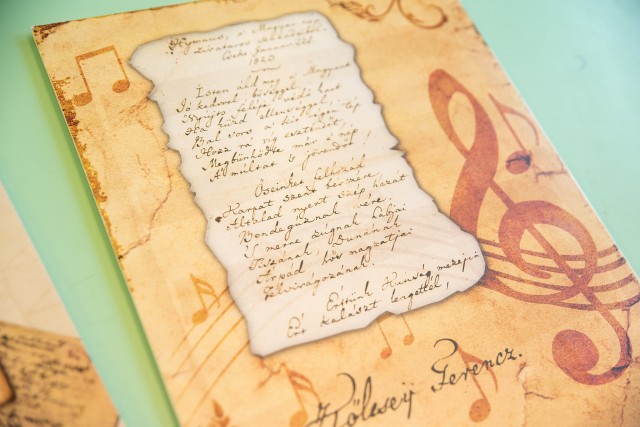 Hymnus, a' Magyar nép
zivataros századaiból
Cseke, Januar. 22d.
1823
Isten áldd meg a' Magyart
Jó kedvvel, bőséggel,
Nyújts feléje védő kart
Ha küzd ellenséggel;
Bal sors a' kit régen tép
Hozz rá víg esztendőt,
Megbünhödte már e' nép
A' múltat 's jövendőt!
Őseinket felhozád
Kárpát szent bérczére,
Általad nyert szép hazát
Bendegúznak vére.
'S merre zúgnak habjai
Tiszának, Dunának,
Árpád hős magzatjai
Felvirágozának.
Értünk Kunság mezein
Ért kalászt lengettél,
Kölcsey Ferencz.